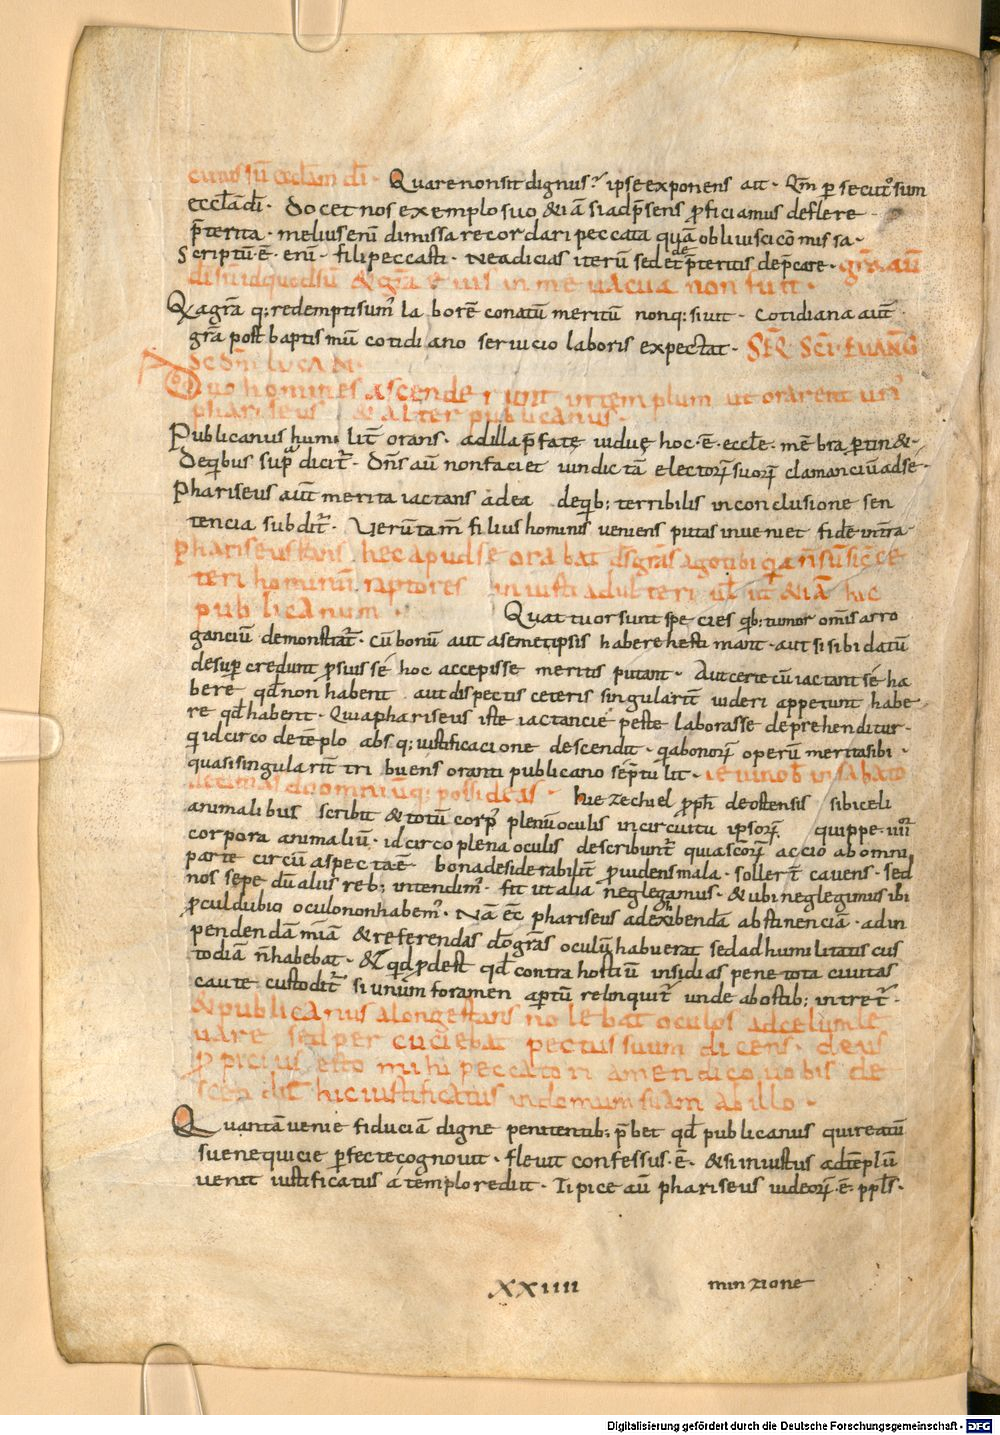 cutus sū eccłam dī · Quare non sit dignus? ipse exponens ait · Qm̄ persecutꝰ sum
eccła dī · Docet nos exemplo suo &iā si adp̄sens proficiamus deflere
p̄terita · melius enī dimissa recordari peccata quā oblivisci cōmissa ·
Scriptū · ē · enī · fili peccasti · Ne adicias iterū sed et de p̄teritis dep̄care · gr̄a aū
di sū id quod sū & gr̄a eius in me vacua non fuit ·
Quia gr̄a q; redemptisumꝰ laborē conatū meritū non q;siuit · cotidiana aut̄
gr̄a post baptismū cotidiano seruicio laboris expectat · SEQ̄ SC̄I EVANḠ
SCD̄M LUCAM ·
Duo homines ascenderunt in templum ut orarent unꝰ
phariseus & alter publicanus ·
Publicanus humilit̄ orans · ad illa p̄fatę viduę hoc · ē · eccłe · mēbra ptin& ·
De quibus sup̄ dicit̄ · Dn̄s aū non faciet vindictā electorꝝ suorꝝ clamanciū ad se ·
Phariseus aut̄ merita iactans ad ea de quib; terribilis in conclusione sen
tencia subdit̄ · Verūtam̄ filius hominis veniens putas inveniet fidē in tr̄a ·
phariseus stans hec apud se orabat ds̄ gras̄ ago tibi quia n̄ sū sic̄ ce
teri hominum raptores iniusti adulteri uł ut &iā hic
publicanum · Quattuor sunt species quib; tumor om̄is arro
ganciū demonstrat̄ · Cū bonū aut a semetipsis habere hestimant · aut si sibi datū
desup̄ credunt p suis sē hoc accepisse meritis putant · Aut certe cū iactant sē ha
bere qd̄ non habent aut dispectis ceteris singularit̄ videri appetunt habe
re qd̄ habent · Quia phariseus iste iactancię peste laborasse deprehenditur ·
qui idcirco de tēplo absq; iustificacione descendit · quia bonorꝝ operū merita sibi ·
quasi singularit̄ tribuens oranti publicano sēp̄tulit · ieiuno b̄ in sabato
decimas do omniūq; possideas · hiezechiel proph̄ de ostensis sibi celi
animalibus scribit & totū corpꝰ plenū oculis in circuitu ipsorꝝ quippe · IIIIor
corpora animaliū · idcirco plena oculis describunt̄ quia scōrꝝ accio ab omni
parte circū aspecta ē bona desiderabilit̄ providens mala · sollert̄ cavens · sed
nos sepe dū alus reb; intendimꝰ · fit ut alia neglegamus · & ubi neglegimus ibi
procul dubio oculo non habemꝰ · Nā ec̄c phariseus ad exhibendā abstinenciā · ad in
pendendā miām & referendas dō gras̄ oculū habuerat sed ad humilitatis cus
todiā n̄ habebat · & quid prodest qd̄ contra hostiū insidias pene tota civitas
caute custodit̄ si unum foramen aptū relinquit̄ unde ab ostib; intret̄ ·
& publicanus a longe stans nolebat oculos ad celum le
vare sed percuciebat pectus suum dicens · deus
propicius esto mihi peccatori amen dico vobis de
scendit̄ hic iustificatus in domum suam ab illo ·
Quantā venie fiduciā digne penitentib; p̄bet qd̄ publicanus qui reatū
sue nequicie perfecte cognovit · flevit confessus · ē · & si iniustus ad tēplū
venit iustificatus a templo rediit · Tipice aū phariseus iudeorꝝ · ē · ppłs ·
XXIIII minzione
Digitalisierung gefördert durch die Deutsche Forschungsgemeinschaft - DFG